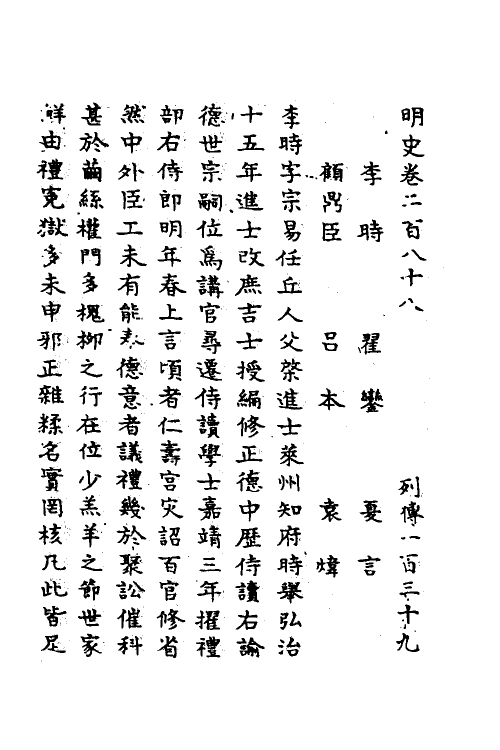 明史卷二百八十八　列傳一百三十九
李時　翟鑾　夏言
顧鼎臣　呂本　袁煒
李時字宗易任丘人父棨進士萊州知府時舉弘治
十五年進士改庶吉士授編修正德中歷侍讀右諭
德世宗嗣位為講官尋遷侍讀學士嘉靖三年擢禮
部右侍郎明年春上言頃者仁壽宮災詔百官修省
然中外臣工未有能表德意者議禮幾於聚訟催科
甚於繭絲權門多槐柳之行在位少羔羊之節世家
鮮由禮冤獄多未申邪正雜糅名實罔核凡此皆足